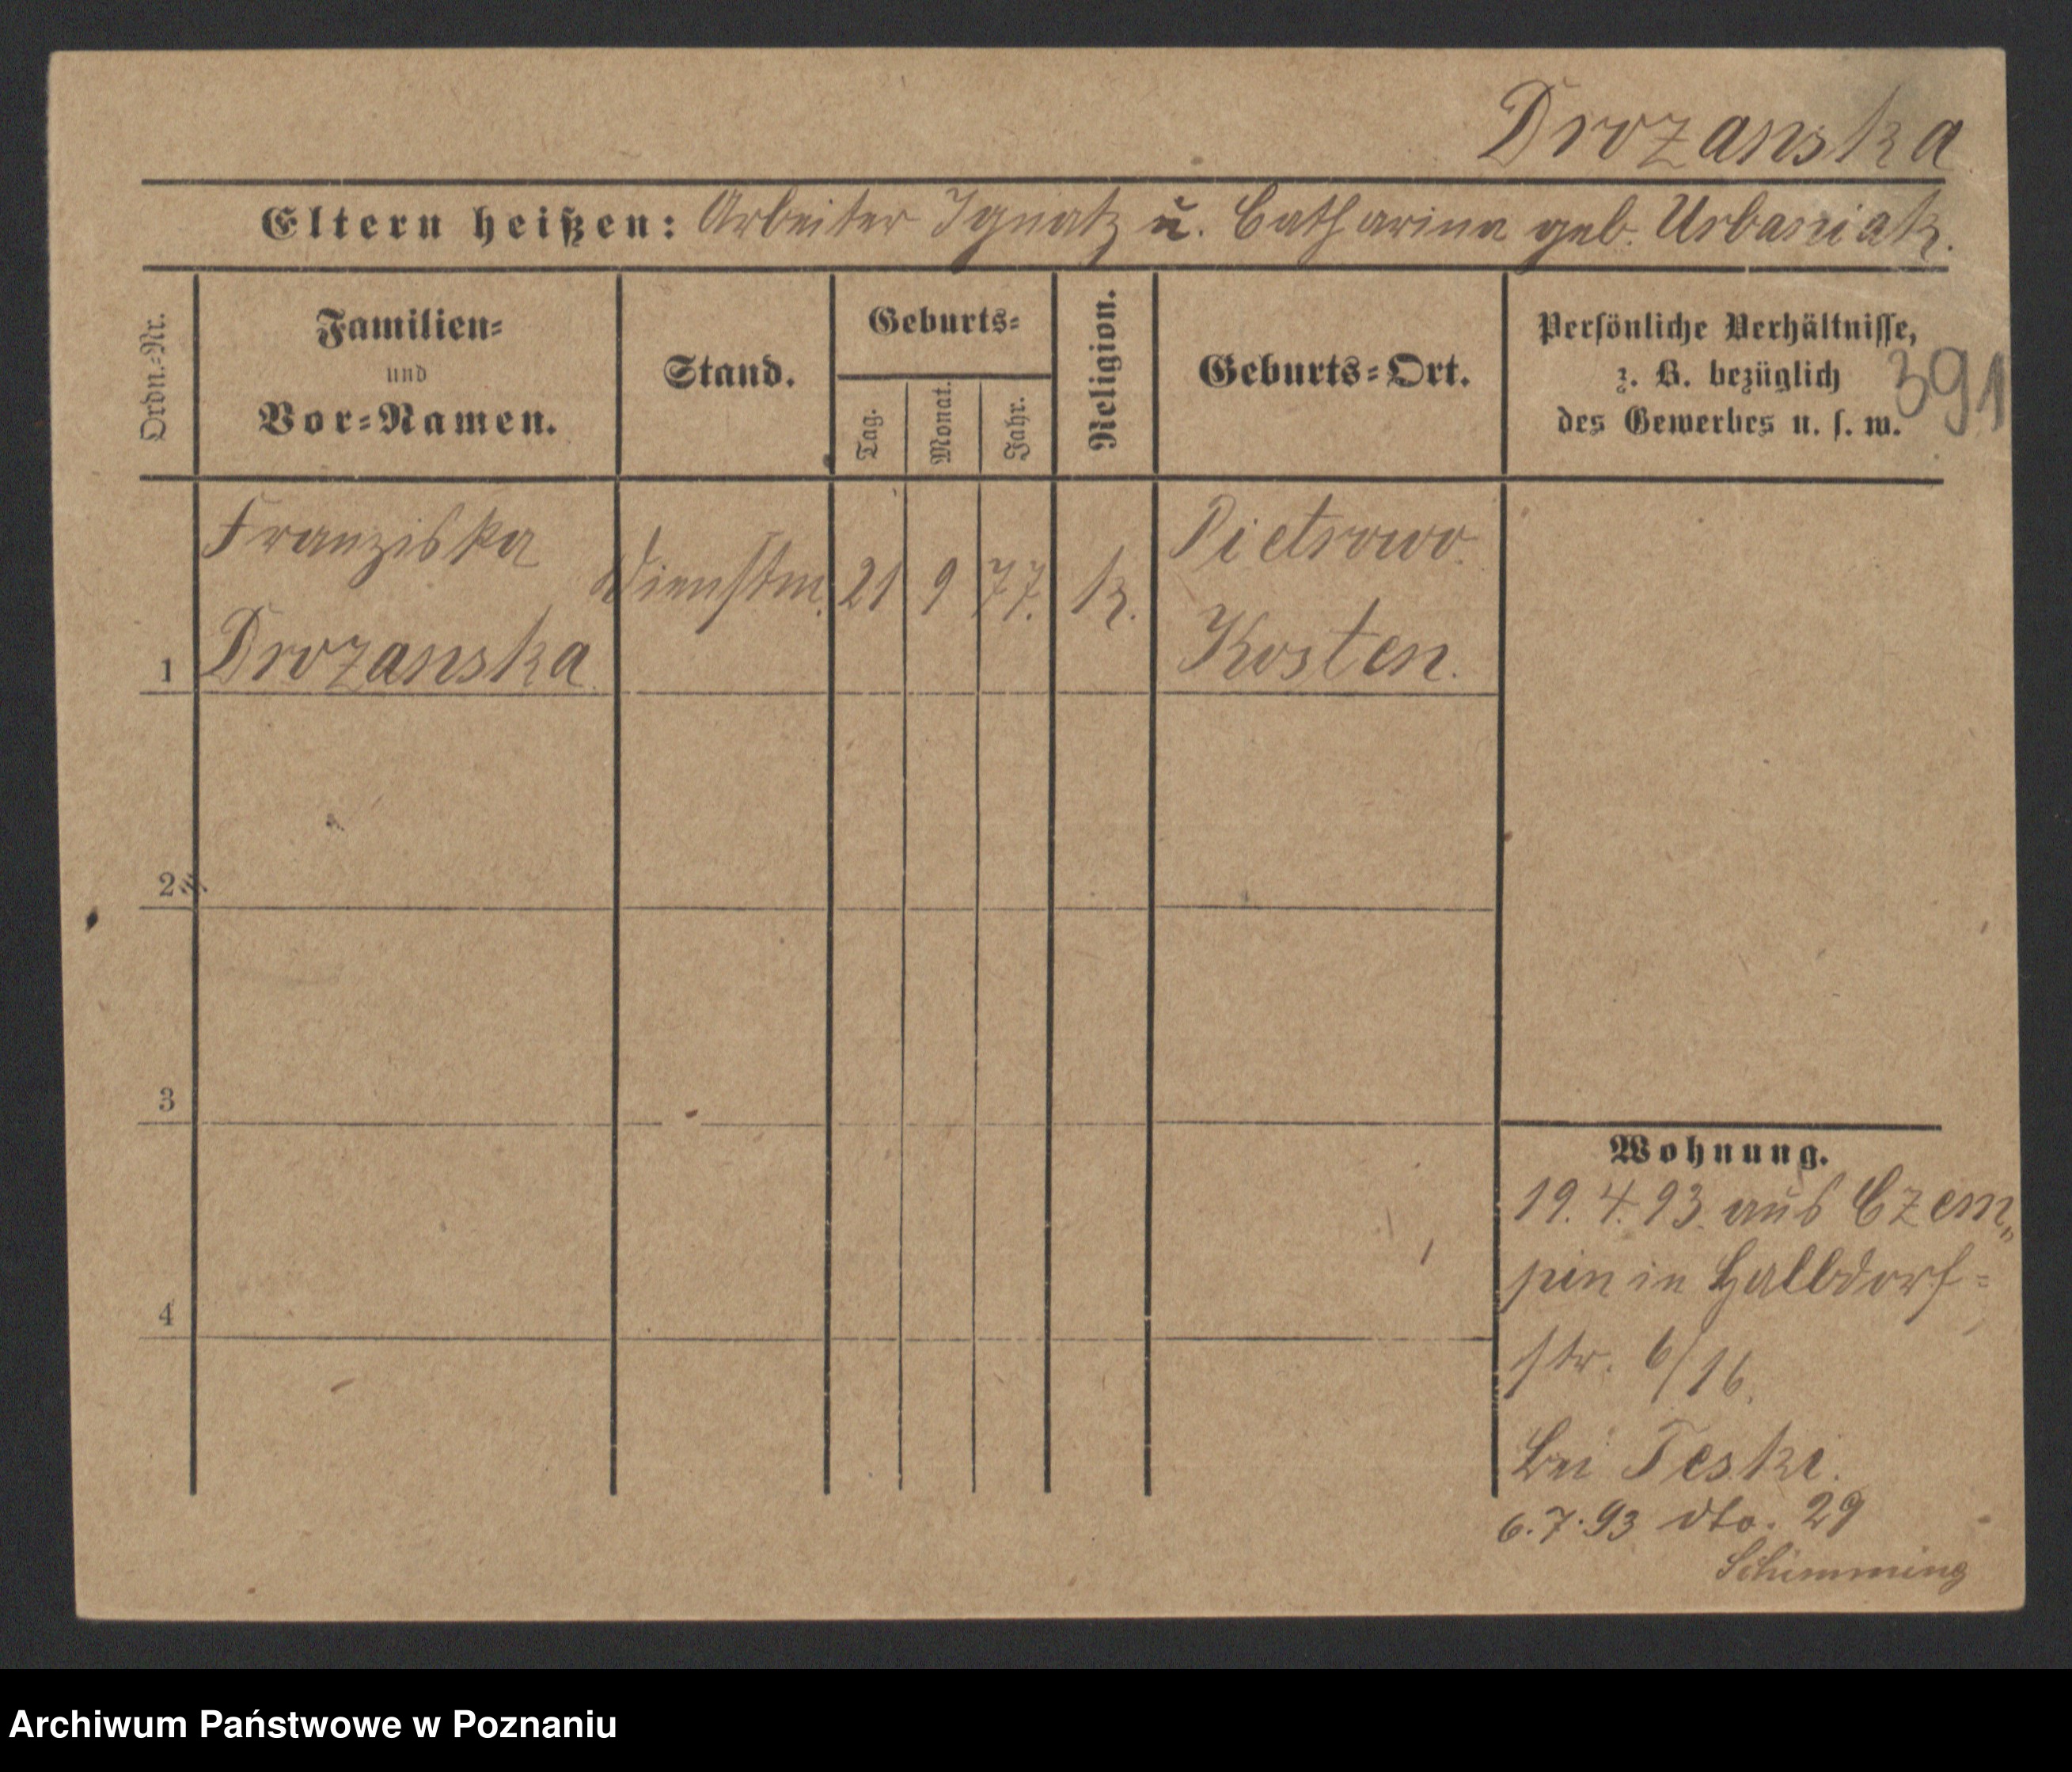 Drozanska
Eltern heißen: Arbeiter Ignatz u. Catharina geb. Urbaniak.
Ordn.-Nr.
Familien-
und
Vor-Namen.
Stand.
Geburts-
Tag.
Monat.
Jahr.
Religion.
Geburts-Ort.
Persönliche Verhältnisse,
z. B. bezüglich
des Gewerbes u. s. w.
391
1
Franziska
Drozanska
Dienstm.
21
9
77.
k.
Pietrowo.
Kosten.
2
3
4
Wohnung.
19.4.93. aus Czem„
pin in Halbdorf=
str. 6/16.
bei Teski.
6.7.93 dto. 29
Schimming
Archiwum Państwowe w Poznaniu